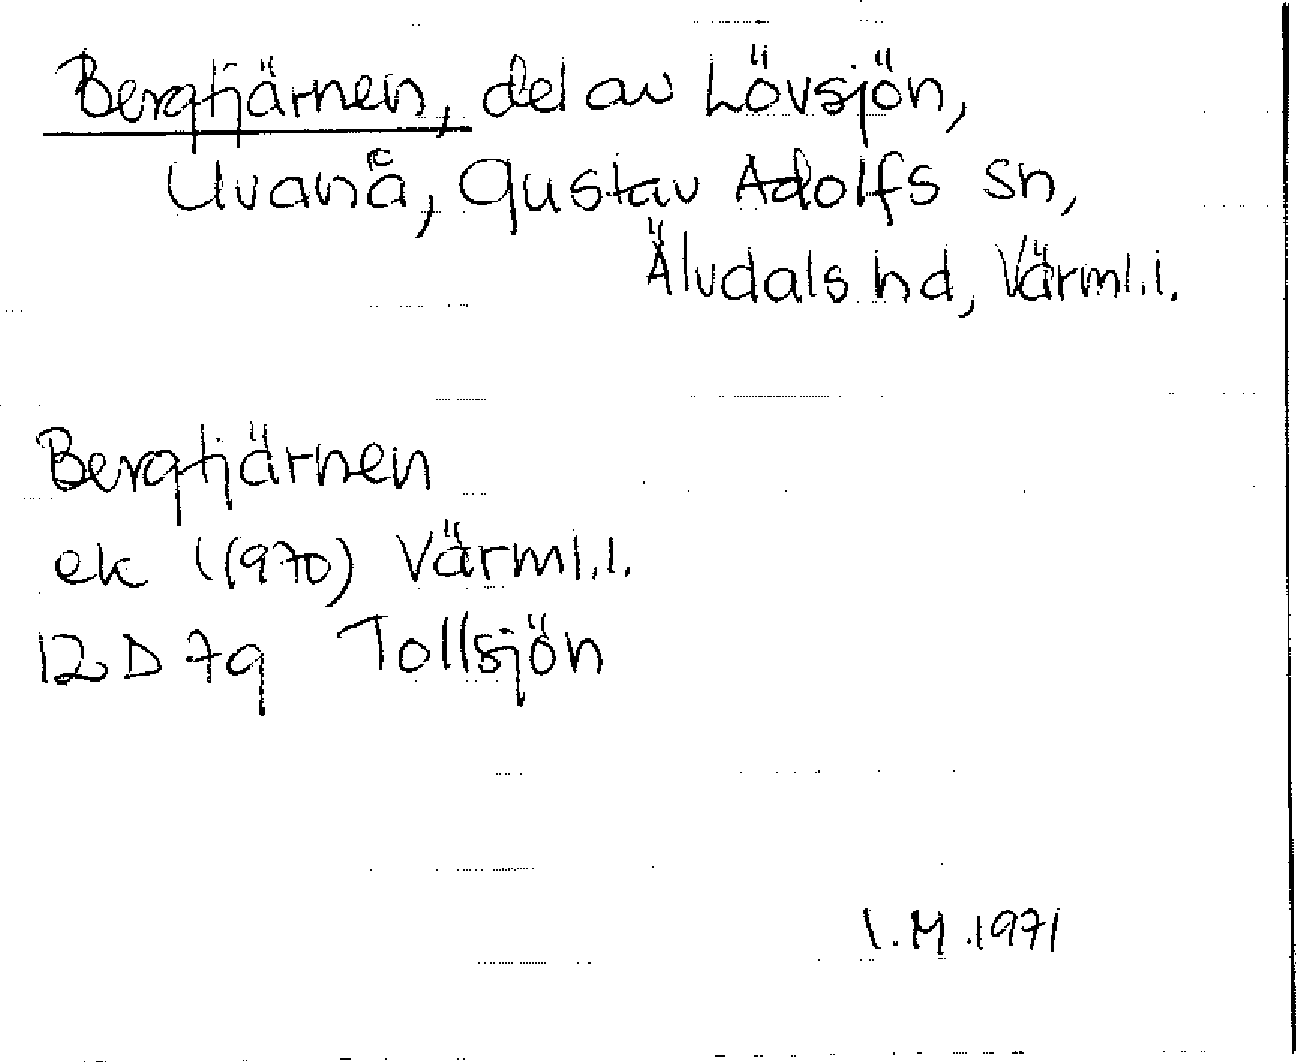 Bergtjärnen, del av Lövsjön,
Uvanå, Gustav Adolfs sn,
Älvdals hd, Värml.l.
Bergtjärnen
ek (1970) Värml.l.
12D 7g Tollsjön
I.M.1971